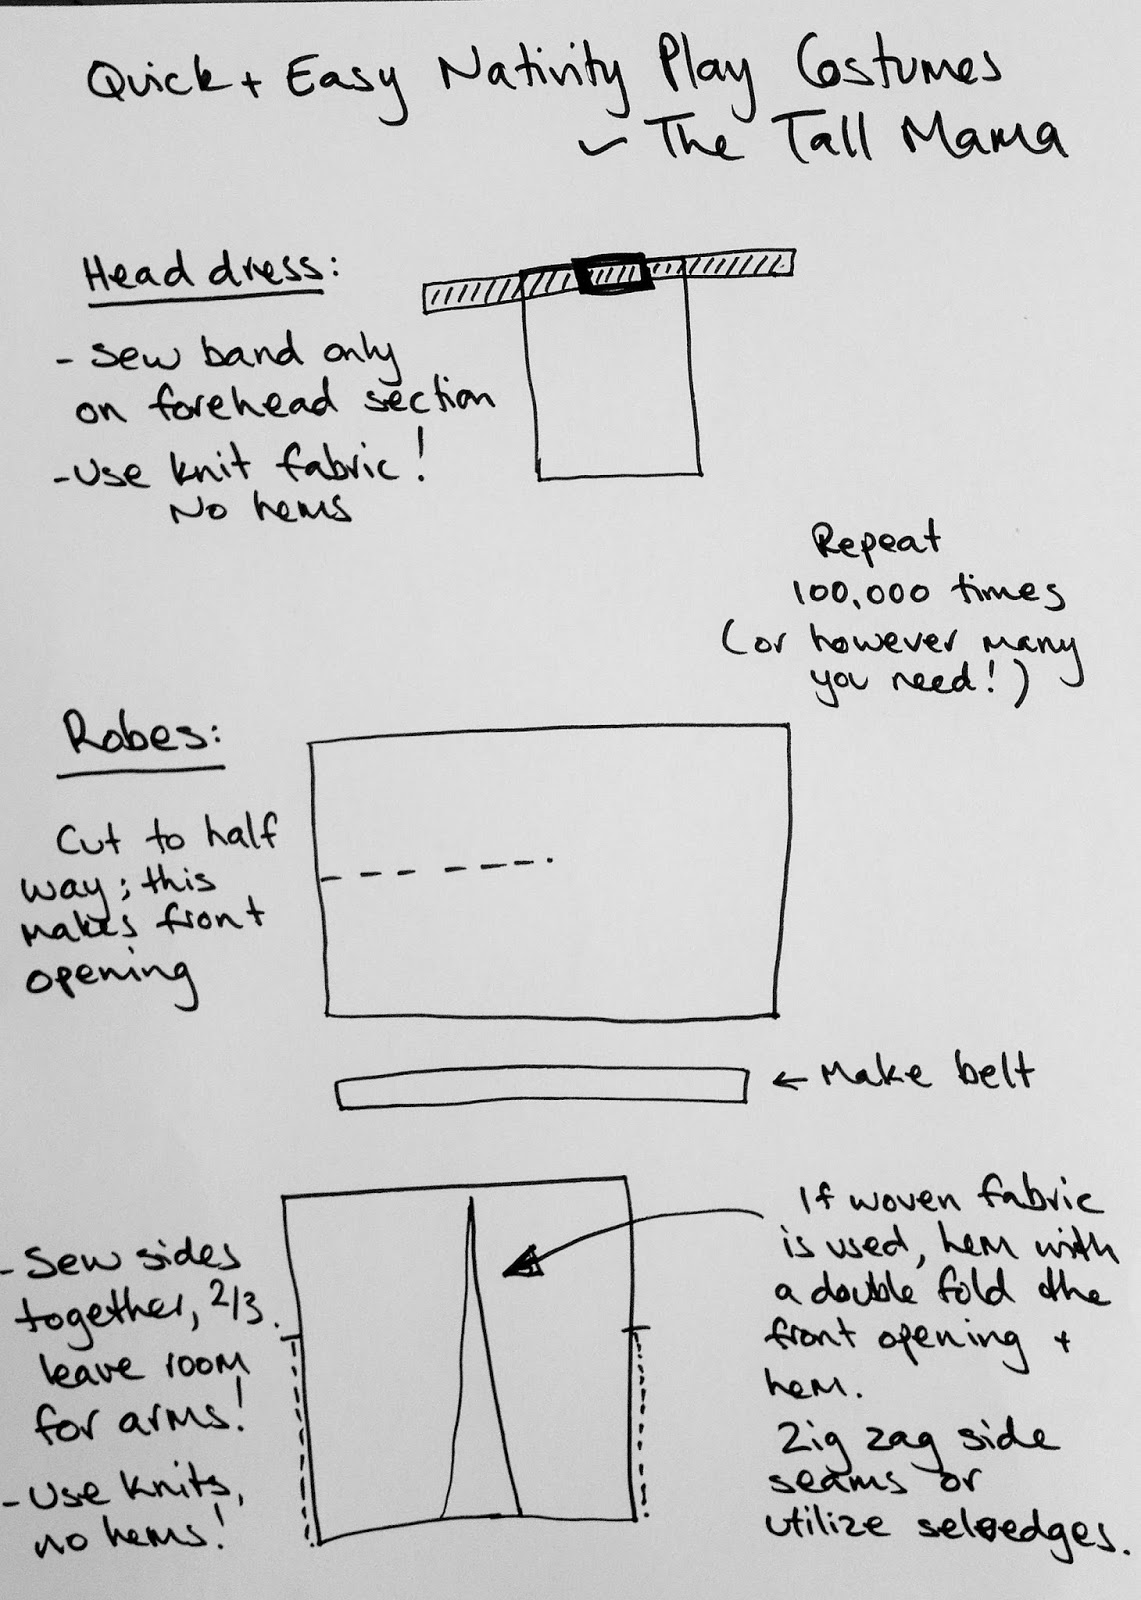 Quick + Easy Nativity Play Costumes
~ The Tall Mama
Head dress:
- Sew band only
on forehead section
- Use knit fabric!
No hems
Repeat
100,000 times
(or however many
you need!)
Robes:
Cut to half
way; this
makes front
opening
← Make belt
- Sew sides
together, 2/3.
leave room
for arms!
- Use knits,
no hems!
If woven fabric
is used, hem with
a double fold the
front opening +
hem.
Zig zag side
seams or
utilize selvedges.